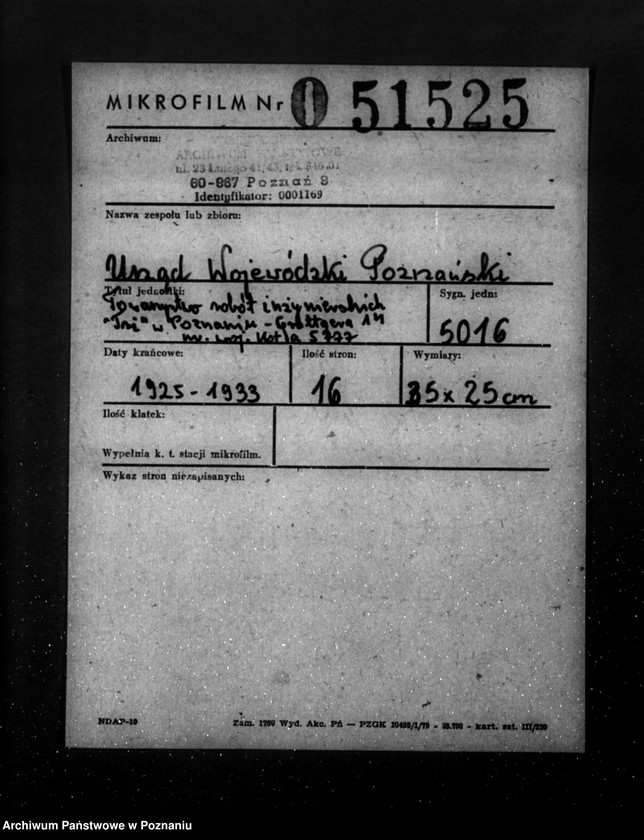 MIKROFILM Nr 0 51525
Archiwum:
ARCHIWUM PAŃSTWOWE
ul. 23 Lutego 41/43, tel. 546-01
60-967 Poznań 9
Identyfikator: 0001169
Nazwa zespołu lub zbioru:
Urząd Wojewódzki Poznański
Tytuł jednostki:
Towarzystwo robót inżynierskich
"Tri" w Poznaniu - Grottgera 14
nr. woj. kotła 5777
Sygn. jedn:
5016
Daty krańcowe:
1925 - 1933
Ilość stron:
16
Wymiary:
35 x 25 cm
Ilość klatek:
Wypełnia k. t. stacji mikrofilm.
Wykaz stron niezapisanych:
NDAP-10
Zam. 1760 Wyd. Akc. Pń — PZGK 10455/1/79 - 25.700 - kart. sat. III/220
Archiwum Państwowe w Poznaniu